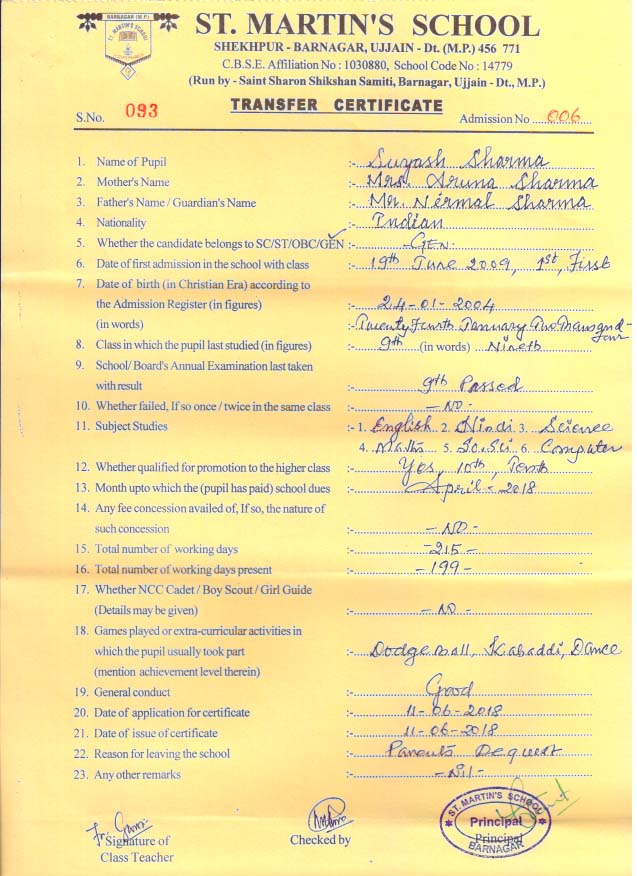 BARNAGAR (M.P.)
ST. MARTIN'S SCHOOL
ST. MARTIN'S SCHOOL
SHEKHPUR - BARNAGAR, UJJAIN - Dt. (M.P.) 456 771
C.B.S.E. Affiliation No : 1030880, School Code No : 14779
(Run by - Saint Sharon Shikshan Samiti, Barnagar, Ujjain - Dt., M.P.)
TRANSFER CERTIFICATE
S.No. 093 Admission No ....006
1. Name of Pupil :- Suyash Sharma
2. Mother's Name :- Mrs. Aruna Sharma
3. Father's Name / Guardian's Name :- Mr. Nirmal Sharma
4. Nationality :- Indian
5. Whether the candidate belongs to SC/ST/OBC/GEN :- GEN.
6. Date of first admission in the school with class :- 19th June 2009, 1st, First
7. Date of birth (in Christian Era) according to
the Admission Register (in figures) :- 24-01-2004
(in words) :- Twenty Fourth January Two Thousand-four
8. Class in which the pupil last studied (in figures) :- 9th (in words) Nineth
9. School/ Board's Annual Examination last taken
with result :- 9th Passed
10. Whether failed, If so once / twice in the same class :- - NO -
11. Subject Studies :- 1. English 2. Hindi 3. Science
4. Maths 5. So.Sci 6. Computer
12. Whether qualified for promotion to the higher class :- Yes, 10th, Tenth
13. Month upto which the (pupil has paid) school dues :- April - 2018
14. Any fee concession availed of, If so, the nature of
such concession :- - NO -
15. Total number of working days :- - 215 -
16. Total number of working days present :- - 199 -
17. Whether NCC Cadet / Boy Scout / Girl Guide
(Details may be given) :- - NO -
18. Games played or extra-curricular activities in
which the pupil usually took part :- Dodge ball, Kabaddi, Dance
(mention achievement level therein)
19. General conduct :- Good
20. Date of application for certificate :- 11-06-2018
21. Date of issue of certificate :- 11-06-2018
22. Reason for leaving the school :- Parents Request
23. Any other remarks :- - Nil -
ST. MARTIN'S SCHOOL
Principal
Signature of Checked by Principal
Class Teacher BARNAGAR